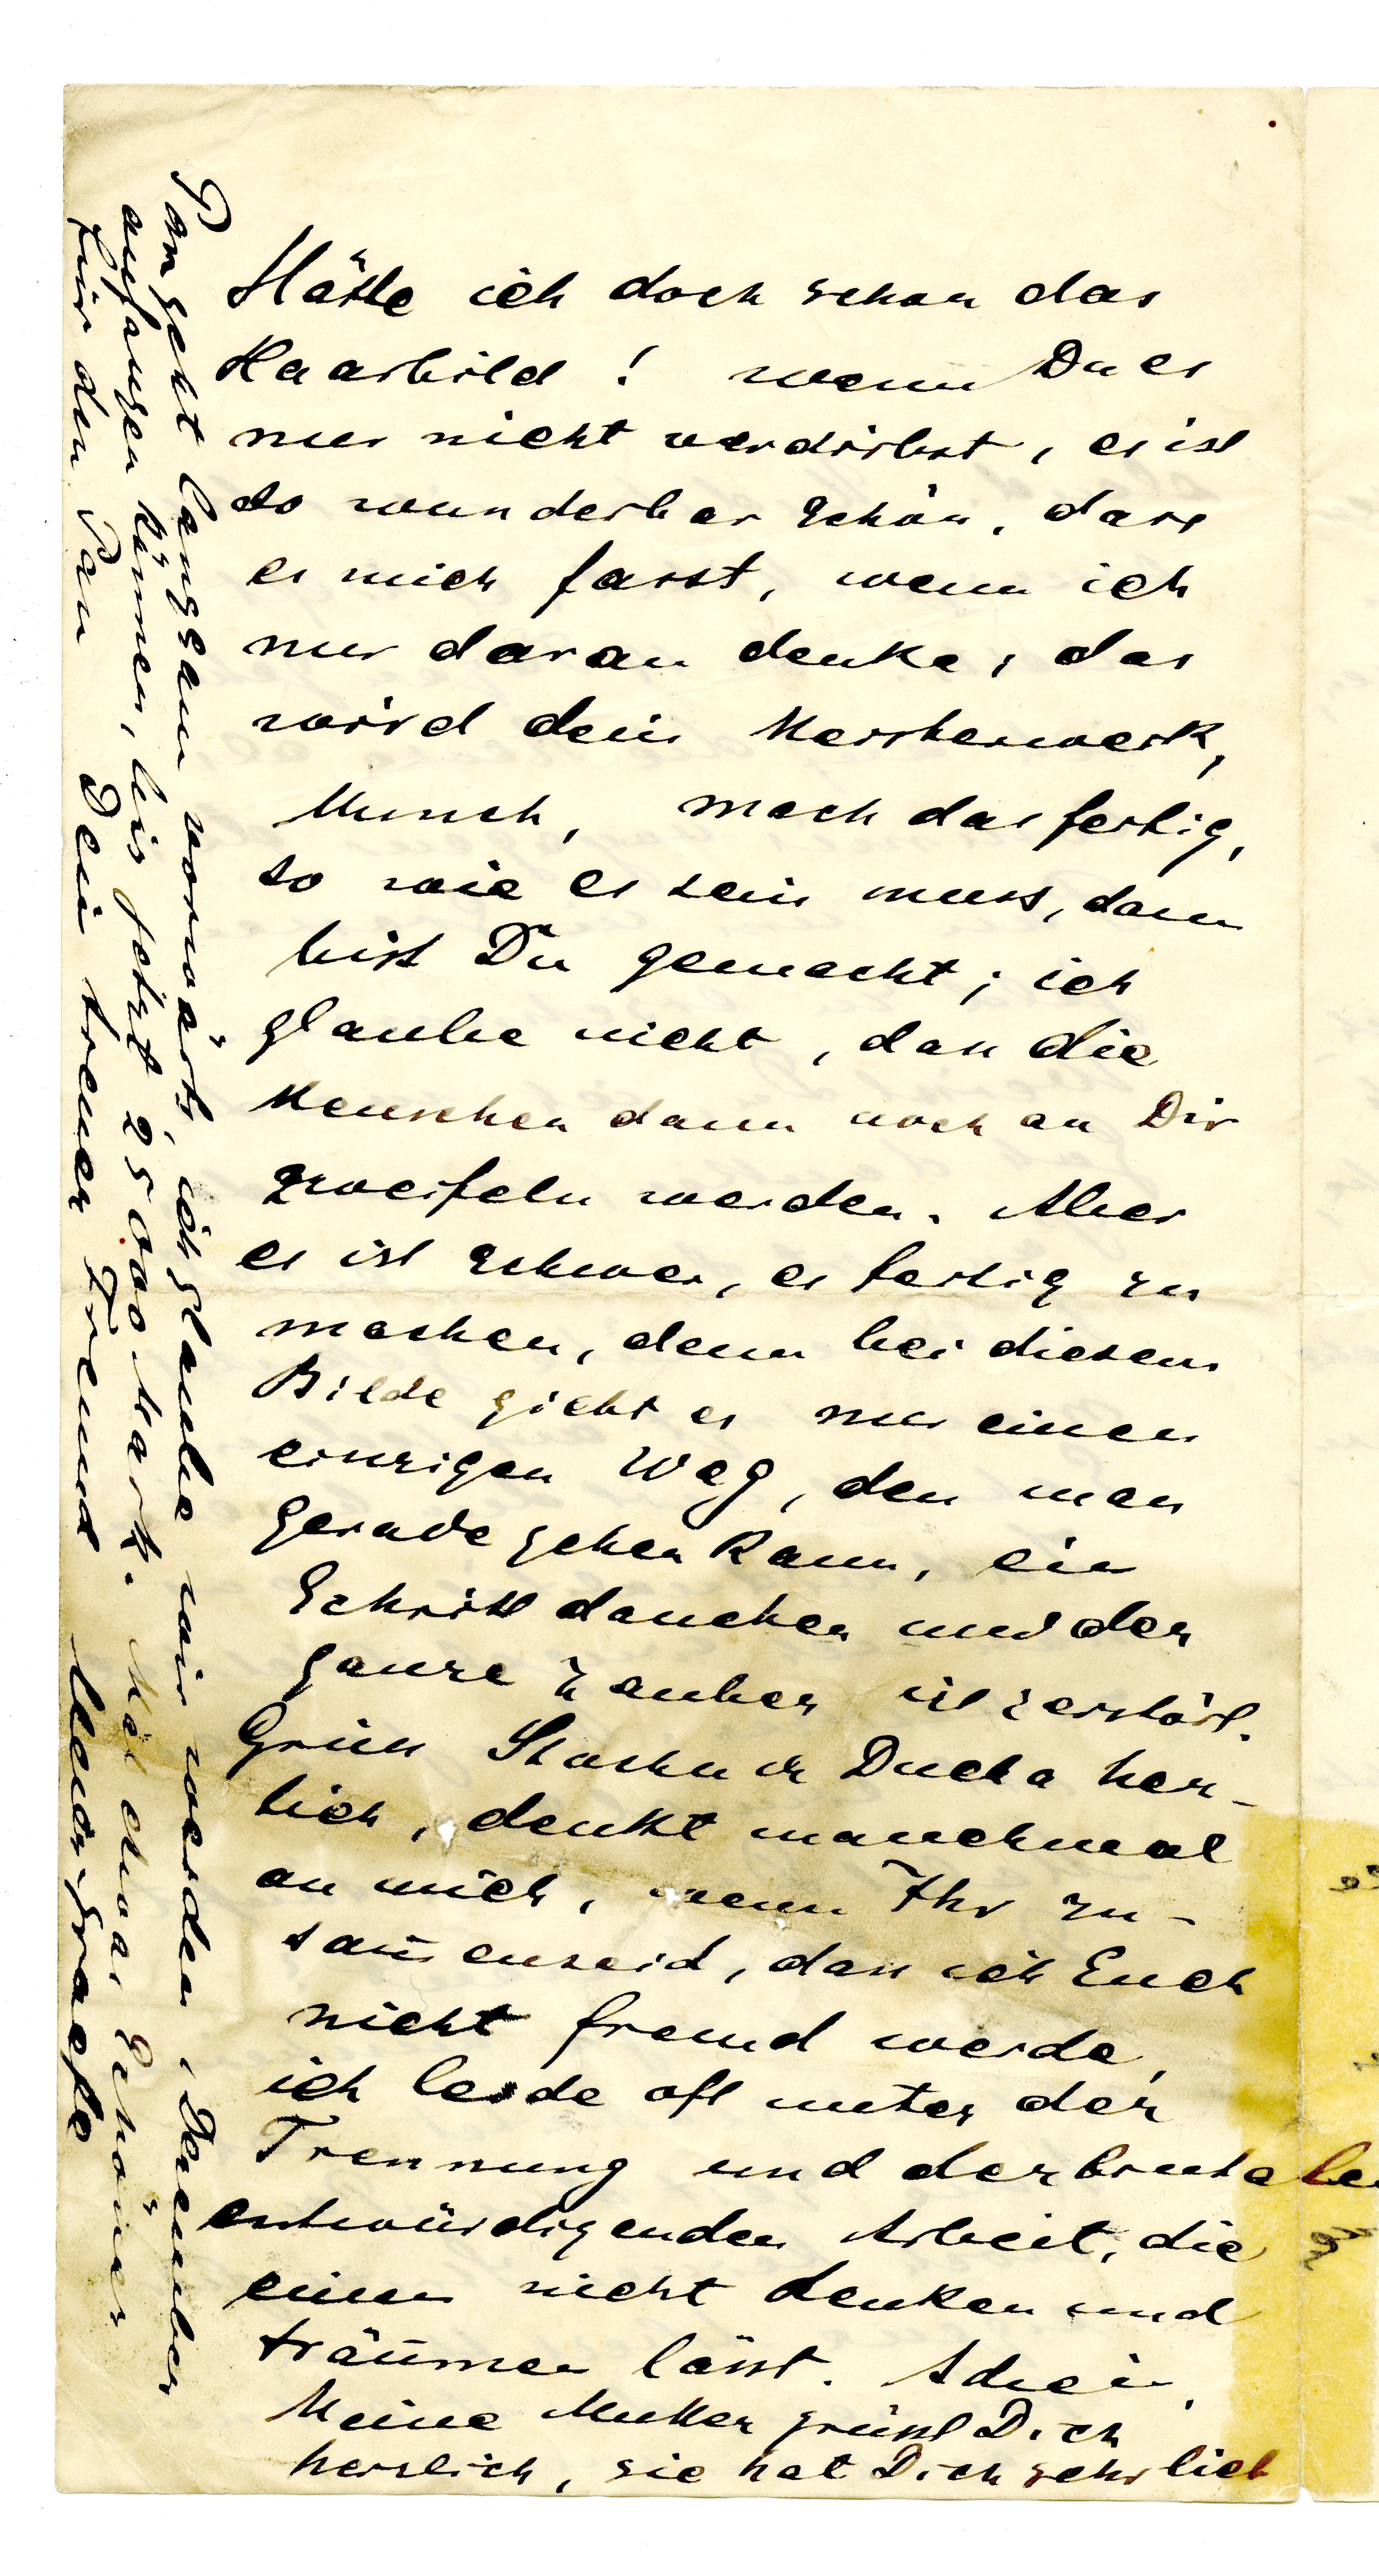 Hätte ich doch schon das
Haarbild! wenn Du es
nur nicht verdirbst, es ist
so wunderbar schön, dass
es mich fasst, wenn ich
nur daran denke, das
wird dein Meisterwerk,
Munch, mach das fertig,
so wie es sein muss, dann
bist Du gemacht; ich
glaube nicht, dass die
Menschen dann noch an Dir
zweifeln werden. Aber
es ist schwer, es fertig zu
machen, denn bei diesem
Bilde giebt es nur einen
einzigen Weg, den man
gerade gehen kann, ein
Schritt daneben und der
ganze Zauber ist zerstört.
Grüss Stachu u Ducha herz-
lich, denkt manchmal
an mich, wenn Ihr zu-
sam̄enseid, dass ich Euch
nicht fremd werde,
ich leide oft unter der
Trennung und der brutalen
entwürdigenden Arbeit, die
einen nicht denken und
träumen lässt. Adieu,
Meine Mutter grüsst Dich
herzlich, sie hat Dich sehr lieb
Pan geht langsam vorwärts, ich glaube wir werden, Dezember
anfangen können, bis jetzt 25 000 Mark. Mal etwas Schönes
für den Pan Dein treuer Freund Meier-Graefe